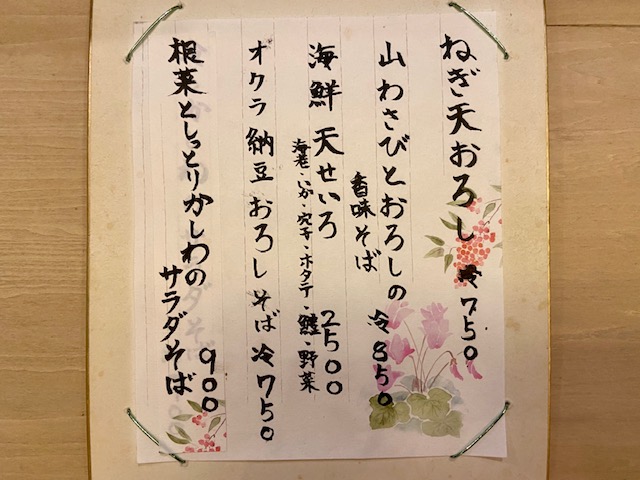 ねぎ天おろし 冷750
山わさびとおろしの
香味そば 冷850
海鮮天せいろ 2500
海老・いか・穴子・ホタテ・鱚・野菜
オクラ納豆おろしそば 冷750
根菜としっとりかしわの
サラダそば 900